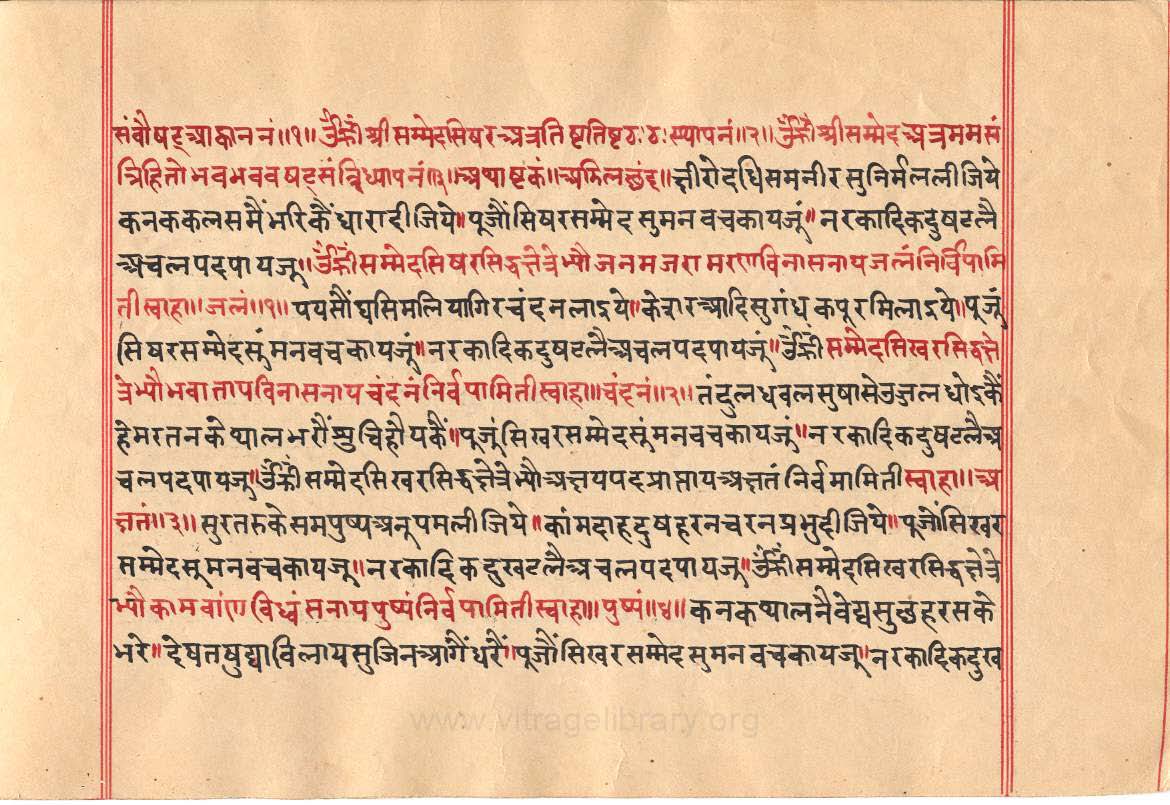 संवौषट्आह्वाननं॥१॥ ॐह्रीं श्री सम्मेदसिषरअत्रतिष्टतिष्ट ठः ठः स्थापनं॥२॥ ॐह्रीं श्रीसम्मेदअत्रममसं
न्निहितोभवभववषट्संन्निध्यापनं॥३॥अथाष्टकं॥अडिलछंद॥ क्षीरोदधिसमनीरसुनिर्मललीजिये
कनककलसमैंभरिकैंधारादीजिये॥ पूजौंसिषरसम्मेदसुमनवचकायजूं॥ नरकादिकदुषटलै
अचलपदपायजू॥ ॐह्रीं सम्मेदसिषरसिद्धक्षेत्रेभ्यौ जनमजरामरणविनासनायजलंनिर्विपामि
तीस्वाहा॥ जलं॥१॥ पयसौंघसिमलियागिरचंदनलाऽये॥ केसारआदिसुगंधकपुरमिलाऽये॥पूजुं
सिषरसम्मेदसुंमनवचकायजुं॥ नरकादिकदुषटलैअचलपदपायजुं॥ ॐह्रीं सम्मेदसिखरसिद्धक्षे
त्रेभ्यौभवातापविनासनायचंदनंनिर्वपामितीस्वाहा॥चंदनं॥२॥ तंदुलधवलसुषासेउजुलधोऽकैं
हेमरतनकेथालभरौंशुचिहौयकैं॥ पूजुंसिखरसम्मेदसुंमनवचकायजुं॥ नरकादिकदुषटलैअ
चलपदपायजु॥ ॐह्रीं सम्मेदसिखरसिद्धक्षेत्रेभ्यौअक्षयपदप्राप्तायअक्षतंनिर्वमामितीस्वाहा॥ अ
क्षतं॥३॥ सुरतरुकेसमपुष्पअनुपमलीजिये॥ कांमदाहदुषहरनचरनप्रभुदीजिये॥ पूजोंसिखर
सम्मेदसुमनवचकायजू॥ नरकादिकदुखटलैअचलपदपायजु॥ ॐह्रीं सम्मेदसिखरसिद्धक्षेत्रे
भ्यौकामबांणविध्वंसनायपुष्पंनिर्वपामितीस्वाहा॥ पुष्पं॥४॥ कनकथालनैवेद्यसुष्ठहरसके
भरे॥ देषतषुध्याविलायसुजिनआगैंधरैं॥ पूजौंसिखरसम्मेदसुमनवचकायजू॥ नरकादिकदुख
www.vitragelibrary.org